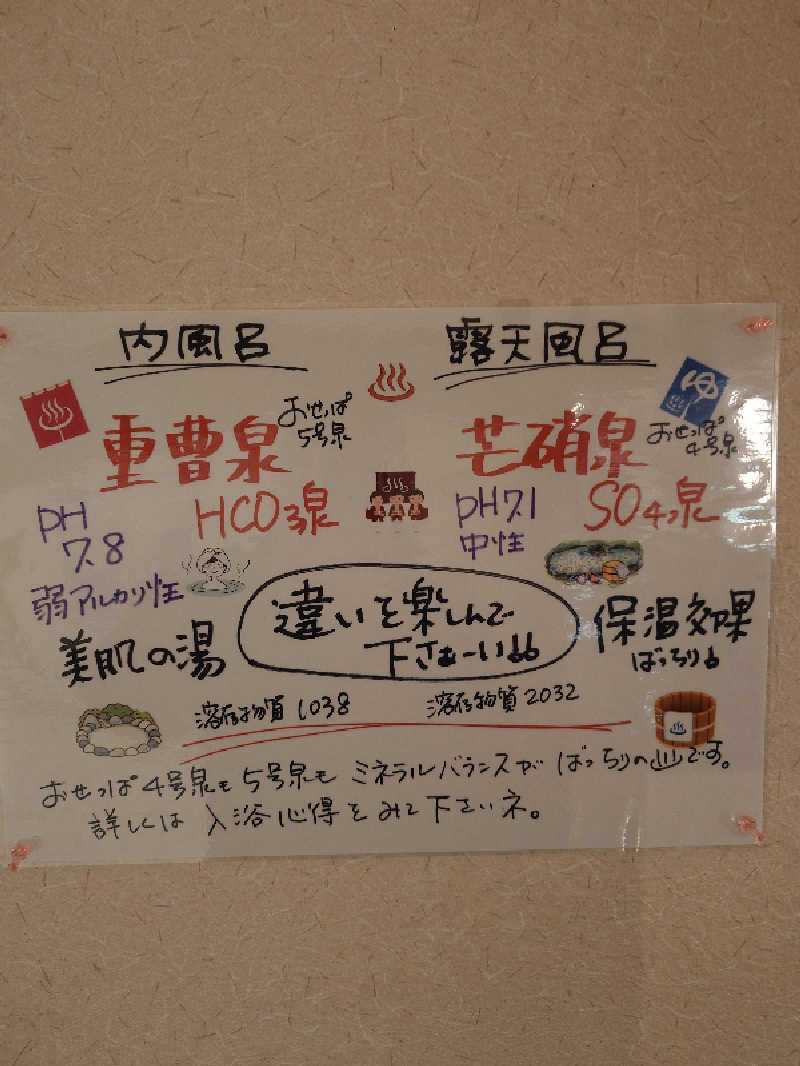 内風呂
重曹泉
おせっぱ
5号泉
HCO3泉
PH
7.8
弱アルカリ性
美肌の湯
溶存物質 1038
露天風呂
ゆ
芒硝泉
おせっぱ
4号泉
SO4泉
pH7.1
中性
保温効果
ばっちり
溶存物質 2032
違いを楽しんで
下さぁーい
おせっぱ4号泉も5号泉も ミネラルバランスが ばっちりの♨です。
詳しくは 入浴心得をみて下さいネ。